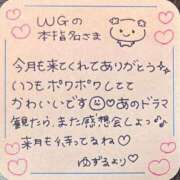 WGの
本指名さま
今月も来てくれてありがとう
いつもポワポワしてて
かわいいです♡あのドラマ
観たら、また感想会しよっ♪
来月も待ってるね♡
ゆずより♡